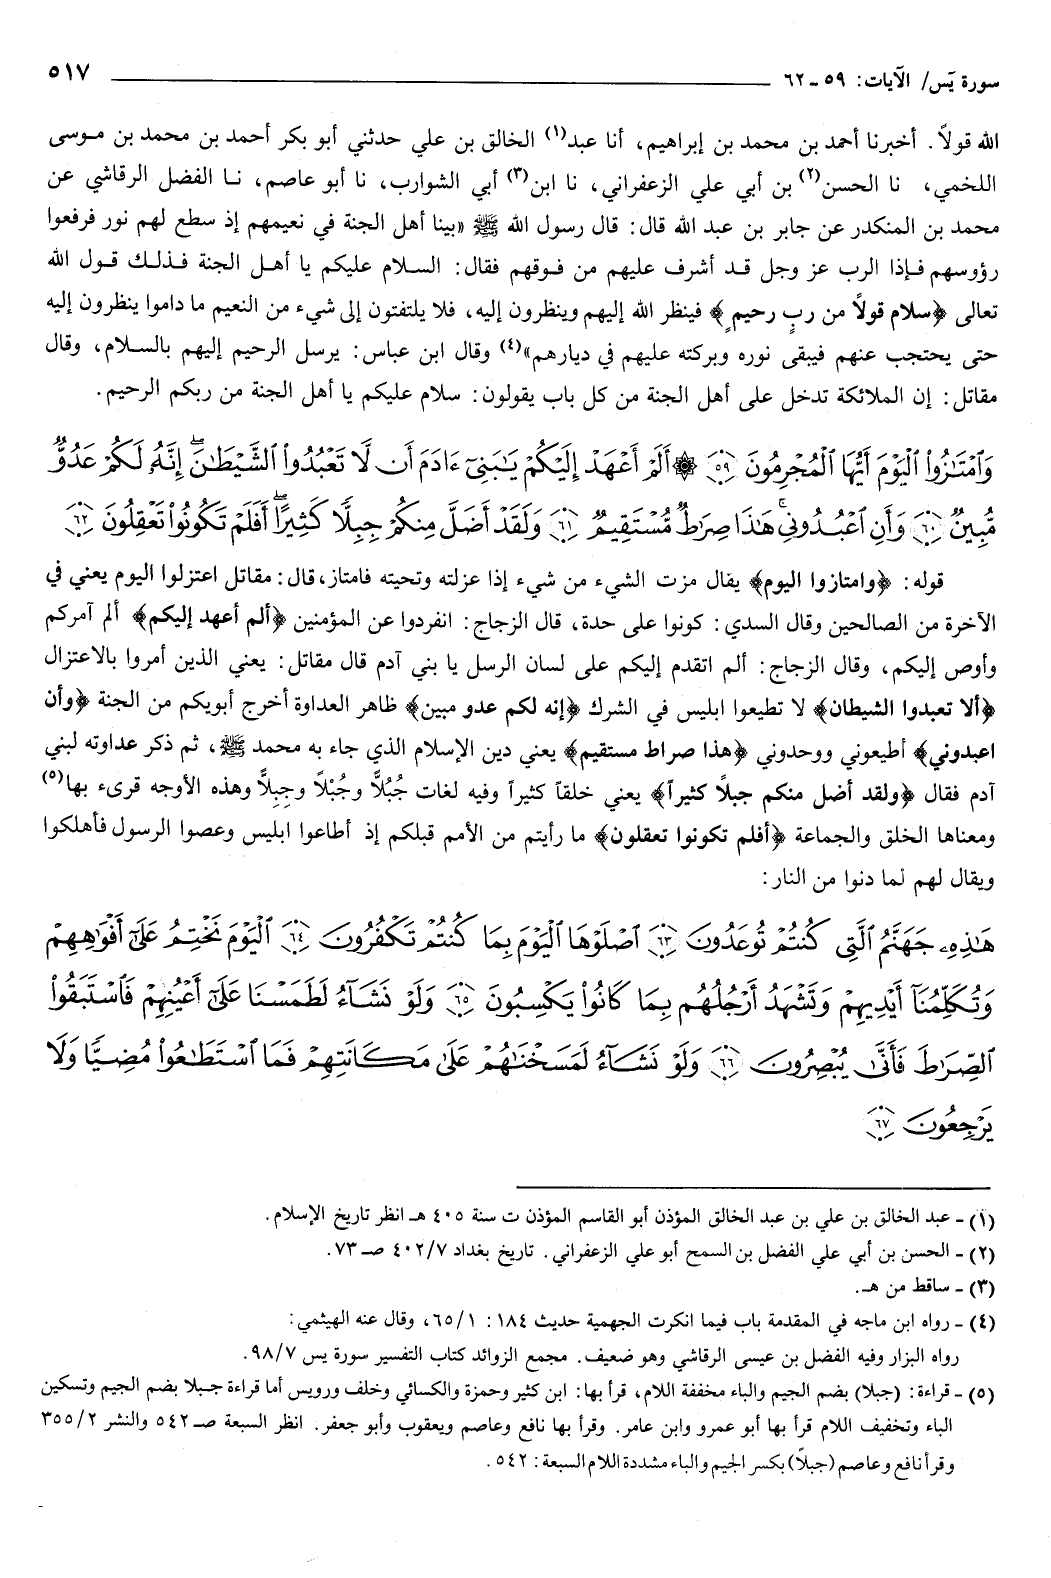 سورة يَس/ الآيات: ٥٩ ـ ٦٢ ٥١٧
الله قولاً. أخبرنا أحمد بن محمد بن إبراهيم، أنا عبد(١) الخالق بن علي حدثني أبو بكر أحمد بن محمد بن موسى
اللخمي، نا الحسن(٢) بن أبي علي الزعفراني، نا ابن(٣) أبي الشوارب، نا أبو عاصم، نا الفضل الرقاشي عن
محمد بن المنكدر عن جابر بن عبد الله قال: قال رسول الله ﷺ «بينا أهل الجنة في نعيمهم إذ سطع لهم نور فرفعوا
رؤوسهم فإذا الرب عز وجل قد أشرف عليهم من فوقهم فقال: السلام عليكم يا أهل الجنة فذلك قول الله
تعالى ﴿سلام قولاً من ربٍ رحيمٍ﴾ فينظر الله إليهم وينظرون إليه، فلا يلتفتون إلى شيء من النعيم ما داموا ينظرون إليه
حتى يحتجب عنهم فيبقى نوره وبركته عليهم في ديارهم»(٤) وقال ابن عباس: يرسل الرحيم إليهم بالسلام، وقال
مقاتل: إن الملائكة تدخل على أهل الجنة من كل باب يقولون: سلام عليكم يا أهل الجنة من ربكم الرحيم.
وَٱمْتَٰزُوا۟ ٱلْيَوْمَ أَيُّهَا ٱلْمُجْرِمُونَ ٥٩ ۞ أَلَمْ أَعْهَدْ إِلَيْكُمْ يَٰبَنِىٓ ءَادَمَ أَن لَّا تَعْبُدُوا۟ ٱلشَّيْطَٰنَ ۖ إِنَّهُۥ لَكُمْ عَدُوٌّ
مُّبِينٌ ٦٠ وَأَنِ ٱعْبُدُونِى ۚ هَٰذَا صِرَٰطٌ مُّسْتَقِيمٌ ٦١ وَلَقَدْ أَضَلَّ مِنكُمْ جِبِلًّا كَثِيرًا ۖ أَفَلَمْ تَكُونُوا۟ تَعْقِلُونَ ٦٢
قوله: ﴿وامتازوا اليوم﴾ يقال مزت الشيء من شيء إذا عزلته وتحيته فامتاز، قال: مقاتل اعتزلوا اليوم يعني في
الآخرة من الصالحين وقال السدي: كونوا على حدة، قال الزجاج: انفردوا عن المؤمنين ﴿ألم أعهد إليكم﴾ ألم آمركم
وأوص إليكم، وقال الزجاج: ألم اتقدم إليكم على لسان الرسل يا بني آدم قال مقاتل: يعني الذين أمروا بالاعتزال
﴿ألا تعبدوا الشيطان﴾ لا تطيعوا ابليس في الشرك ﴿إنه لكم عدو مبين﴾ ظاهر العداوة أخرج أبويكم من الجنة ﴿وأن
اعبدوني﴾ أطيعوني ووحدوني ﴿هذا صراط مستقيم﴾ يعني دين الإسلام الذي جاء به محمد ﷺ، ثم ذكر عداوته لبني
آدم فقال ﴿ولقد أضل منكم جبلاً كثيراً﴾ يعني خلقاً كثيراً وفيه لغات جُبُلًّا وجُبْلاً وجِبِلًّا وهذه الأوجه قرىء بها(٥)
ومعناها الخلق والجماعة ﴿أفلم تكونوا تعقلون﴾ ما رأيتم من الأمم قبلكم إذ أطاعوا ابليس وعصوا الرسول فأهلكوا
ويقال لهم لما دنوا من النار:
هَٰذِهِۦ جَهَنَّمُ ٱلَّتِى كُنتُمْ تُوعَدُونَ ٦٣ ٱصْلَوْهَا ٱلْيَوْمَ بِمَا كُنتُمْ تَكْفُرُونَ ٦٤ ٱلْيَوْمَ نَخْتِمُ عَلَىٰٓ أَفْوَٰهِهِمْ
وَتُكَلِّمُنَآ أَيْدِيهِمْ وَتَشْهَدُ أَرْجُلُهُم بِمَا كَانُوا۟ يَكْسِبُونَ ٦٥ وَلَوْ نَشَآءُ لَطَمَسْنَا عَلَىٰٓ أَعْيُنِهِمْ فَٱسْتَبَقُوا۟
ٱلصِّرَٰطَ فَأَنَّىٰ يُبْصِرُونَ ٦٦ وَلَوْ نَشَآءُ لَمَسَخْنَٰهُمْ عَلَىٰ مَكَانَتِهِمْ فَمَا ٱسْتَطَٰعُوا۟ مُضِيًّا وَلَا
يَرْجِعُونَ ٦٧
(١) - عبد الخالق بن علي بن عبد الخالق المؤذن أبو القاسم المؤذن ت سنة ٤٠٥ هـ انظر تاريخ الإسلام.
(٢) - الحسن بن أبي علي الفضل بن السمح أبو علي الزعفراني. تاريخ بغداد ٤٠٢/٧ صـ ٧٣.
(٣) - ساقط من هـ.
(٤) - رواه ابن ماجه في المقدمة باب فيما انكرت الجهمية حديث ١٨٤: ٦٥/١، وقال عنه الهيثمي:
رواه البزار وفيه الفضل بن عيسى الرقاشي وهو ضعيف. مجمع الزوائد كتاب التفسير سورة يس ٩٨/٧.
(٥) - قراءة: (جبلا) بضم الجيم والباء مخففة اللام، قرأ بها: ابن كثير وحمزة والكسائي وخلف ورويس أما قراءة جبلا بضم الجيم وتسكين
الباء وتخفيف اللام قرأ بها أبو عمرو وابن عامر. وقرأ بها نافع وعاصم ويعقوب وأبو جعفر. انظر السبعة صـ ٥٤٢ والنشر ٣٥٥/٢
وقرأ نافع وعاصم (جبلاً) بكسر الجيم والباء مشددة اللام السبعة: ٥٤٢.